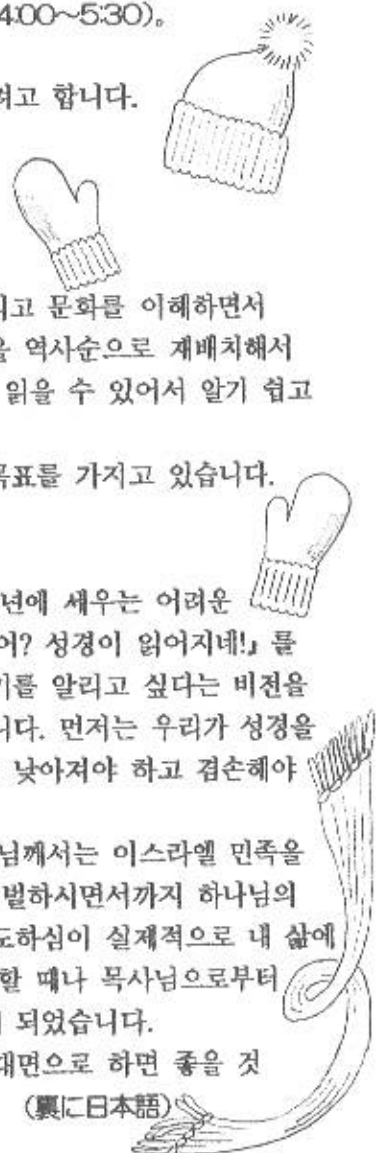 4:00～5:30)。
려고 합니다.
리고 문화를 이해하면서
을 역사순으로 재배치해서
읽을 수 있어서 알기 쉽고
목표를 가지고 있습니다.
년에 세우는 어려운
어? 성경이 읽어지네!」를
기를 알리고 싶다는 비전을
니다. 먼저는 우리가 성경을
낮아져야 하고 겸손해야
님께서는 이스라엘 민족을
벌하시면서까지 하나님의
도하심이 실제적으로 내 삶에
할 때나 목사님으로부터
되었습니다.
대면으로 하면 좋을 것
(裏に日本語)